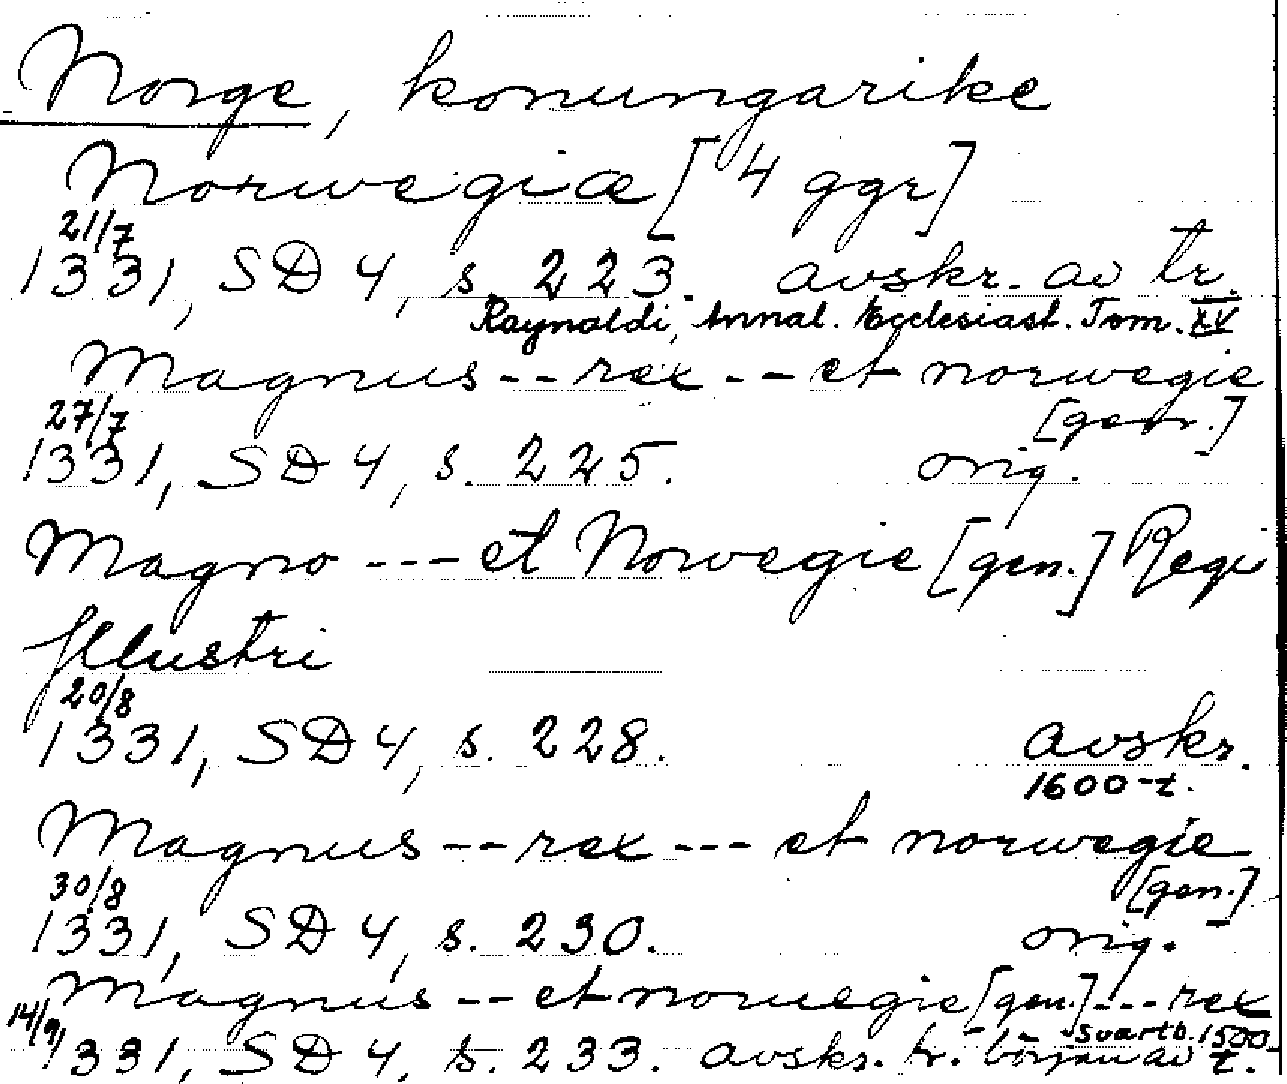 Norge, konungarike
Norwegiæ [4 ggr]
21/7
1331, SD 4, s. 223. avskr. av tr.
Raynaldi, Annal. Ecclesiast. Tom. XV
Magnus -- rex -- et norwegie
27/7 [gen.]
1331, SD 4, s. 225. orig.
Magno --- et Norwegie [gen.] Regi
Illustri
20/8
1331, SD 4, s. 228. avskr.
1600-t.
Magnus -- rex --- et norwegie
30/8 [gen.]
1331, SD 4, s. 230. orig.
Magnus -- et norwegie [gen.] --- rex
14/9 svartb. 1500-
1331, SD 4, s. 233. avskr. fr. början av t.